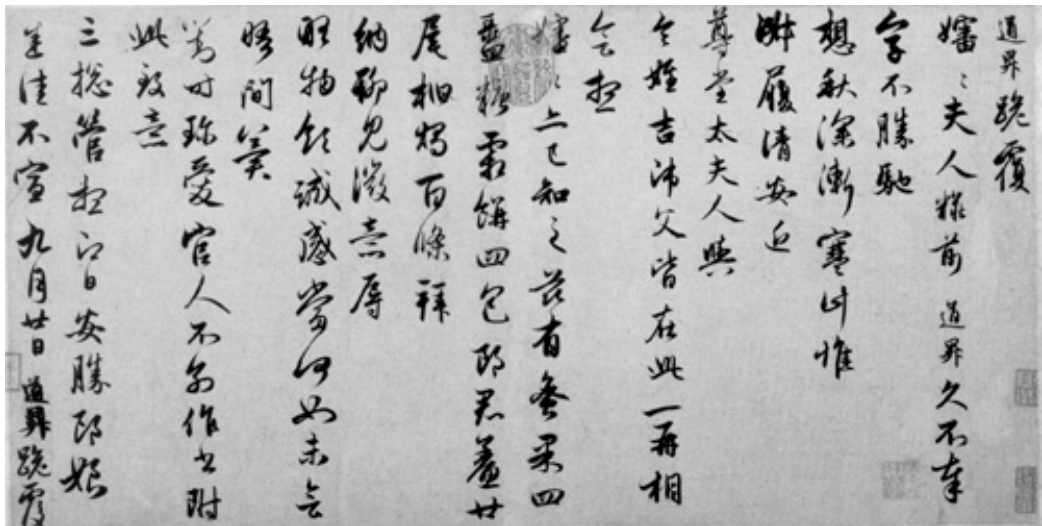 道昇跪覆
嬸〻夫人粧前 道昇久不奉
字不勝馳
想秋深漸寒計惟
淑履清安近
尊堂太夫人與
令姪吉師父皆在此一再相
會想
嬸〻亦已知之茲有蜜果四
盝糖霜餅四包郎君鯗廿
尾桕燭百條拜
納聊見微意辱
略物領誠感當何如未會
晤間冀
對時珍愛官人不別作書附
此致意
三總管想即日安勝郎娘
悉佳不宣九月廿日 道昇跪覆